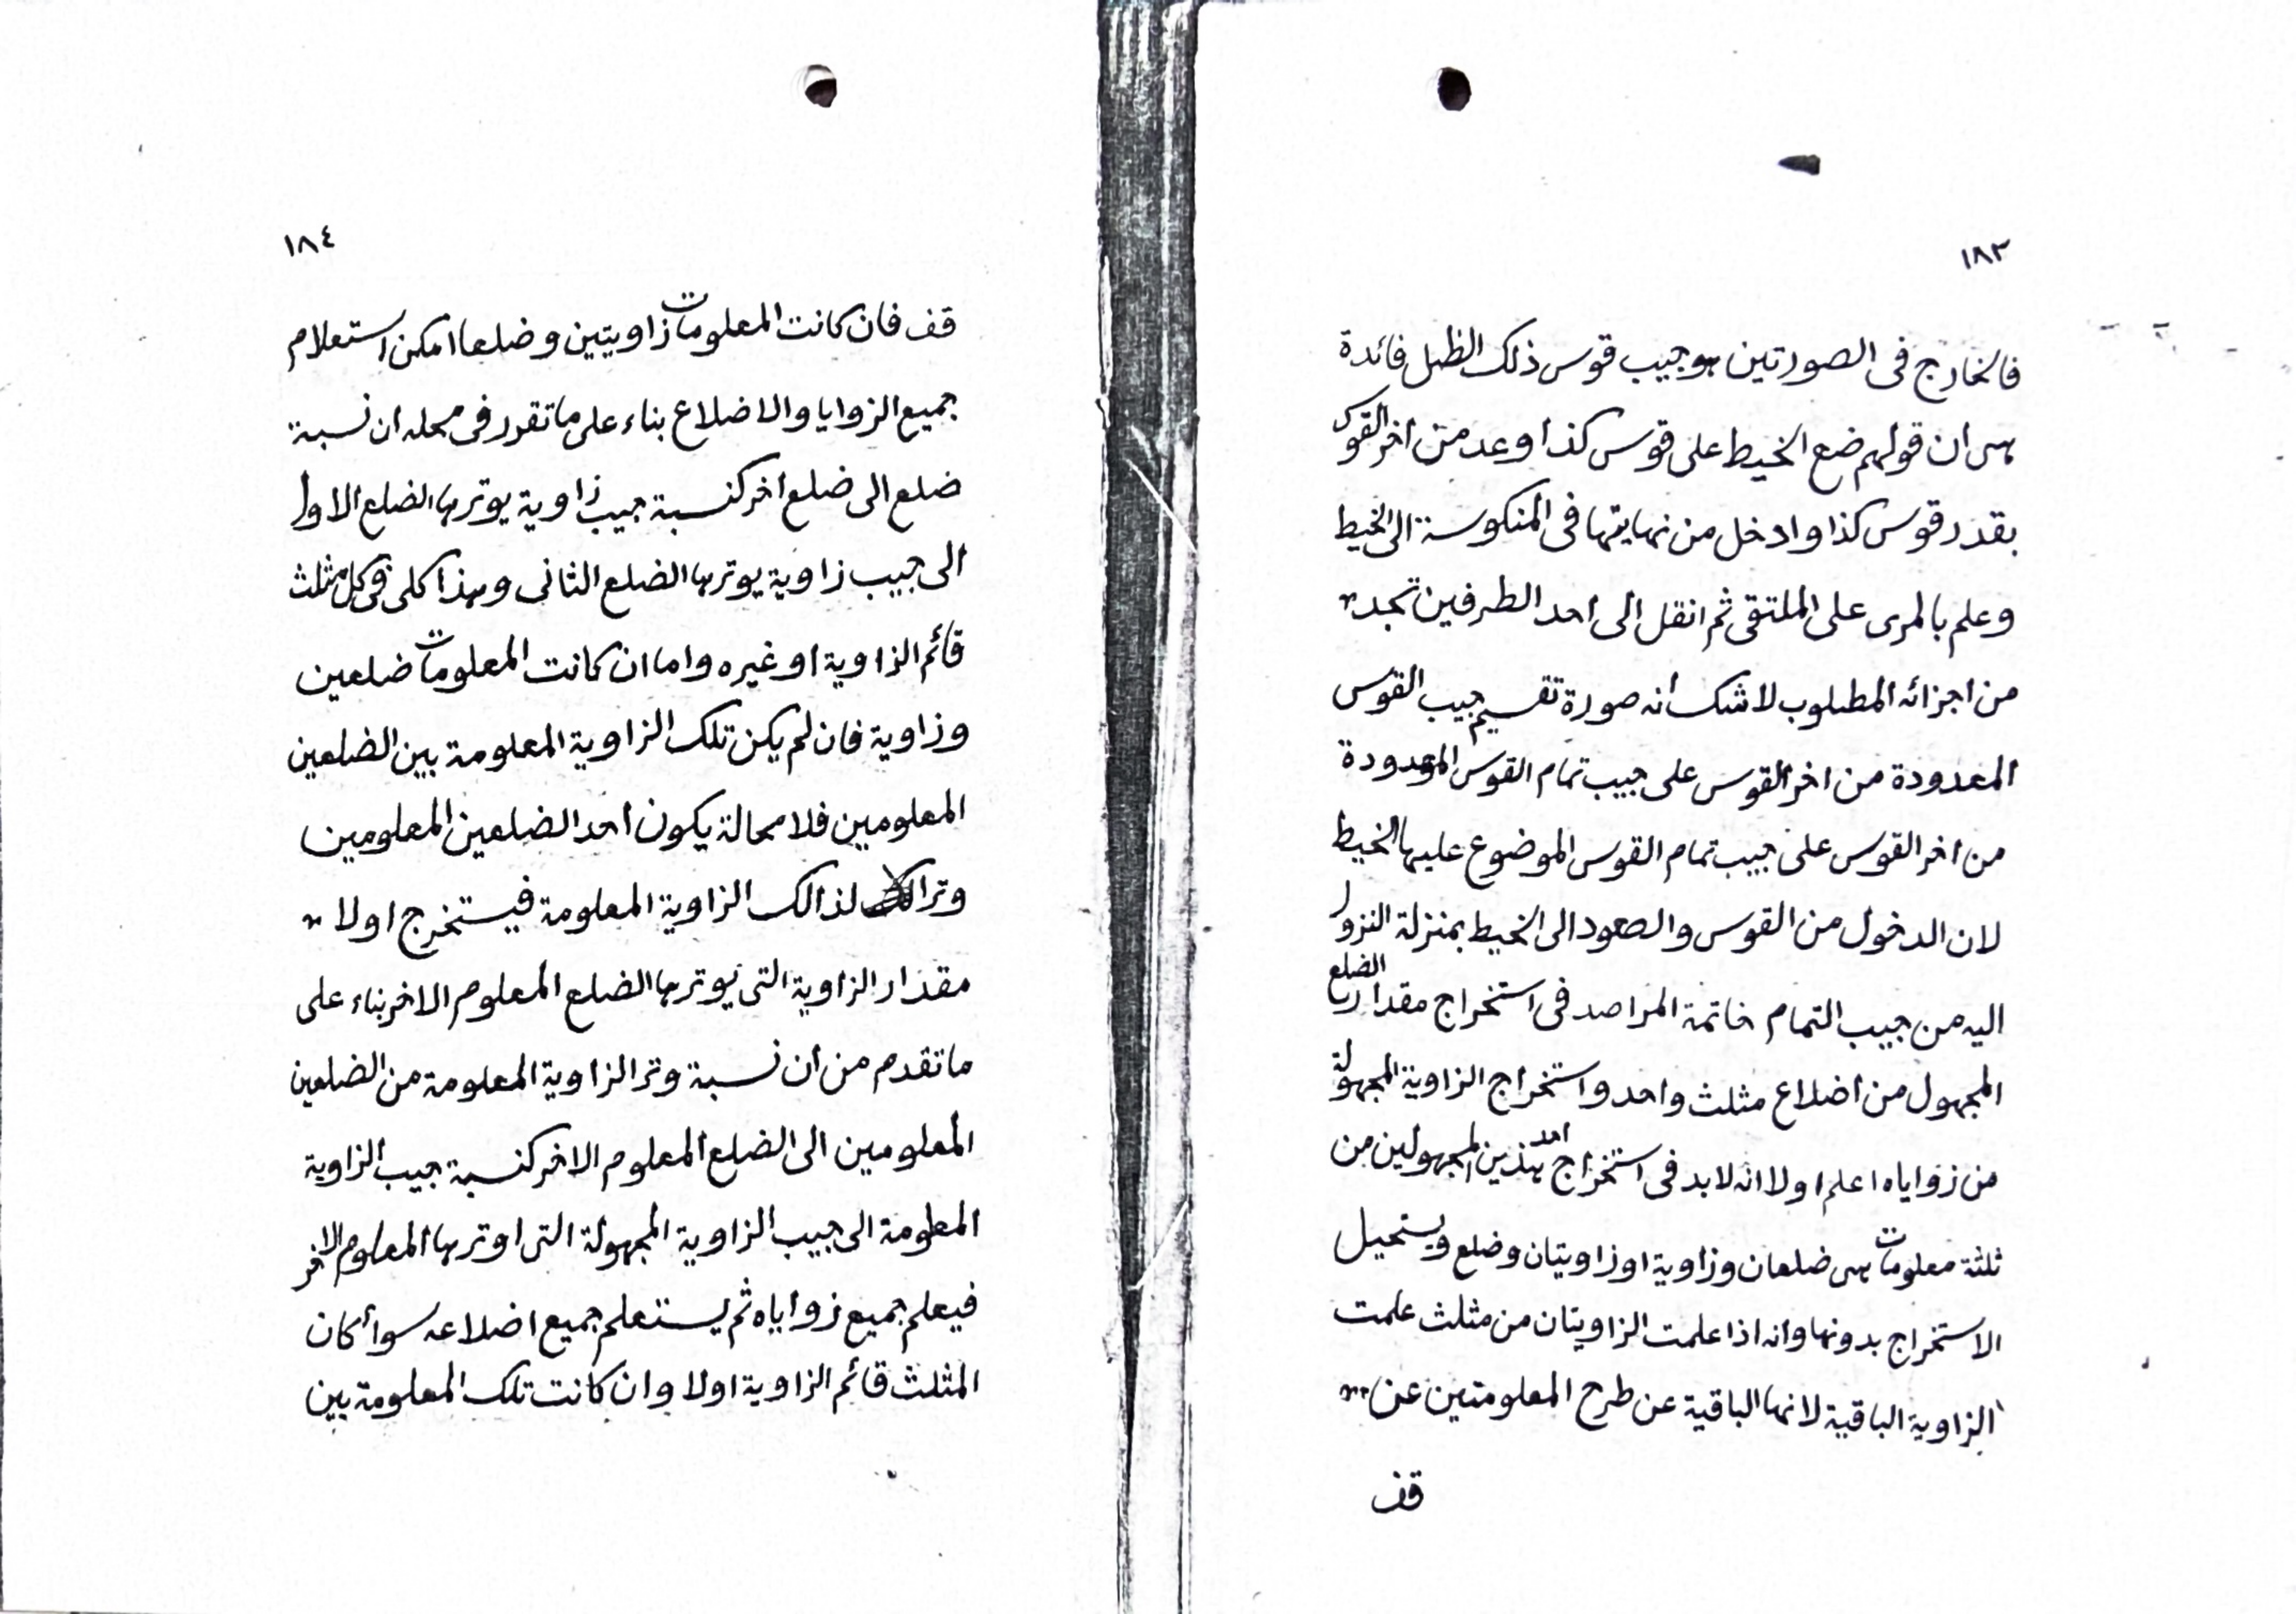 ١٨٣
فالخارج فى الصورتين هو جيب قوس ذلك الظل فائدة
هى ان قولهم ضع الخيط على قوس كذا وعد من اخر القوس
بقدر قوس كذا وادخل من نهايتها فى المنكوسة الى الخيط
وعلم بالمرى على الملتقى ثم انقل الى احد الطرفين تجد
من اجزائه المطلوب لا شك أنه صورة تقسيم جيب القوس
المعدودة من اخر القوس على جيب تمام القوس المعدودة
من اخر القوس على جيب تمام القوس الموضوع عليها الخيط
لان الدخول من القوس والصعود الى الخيط بمنزلة النزول
اليه من جيب التمام خاتمة المراصد فى استخراج مقدار الضلع
المجهول من اضلاع مثلث واحد واستخراج الزاوية المجهولة
من زواياه اعلم اولا انه لا بد فى استخراج احد هذين المجهولين من
ثلثة معلومات هى ضلعان وزاوية او زاويتان وضلع ويستحيل
الاستخراج بدونها وانه اذا علمت الزاويتان من مثلث علمت
الزاوية الباقية لانها الباقية عن طرح المعلومتين عن
قف
١٨٤
قف فان كانت المعلومات زاويتين وضلعا امكن استعلام
جميع الزوايا والاضلاع بناء على ما تقرر فى محله ان نسبة
ضلع الى ضلع اخر كنسبة جيب زاوية يوترها الضلع الاول
الى جيب زاوية يوترها الضلع الثانى وهذا كلى فى كل مثلث
قائم الزاوية او غيره واما ان كانت المعلومات ضلعين
وزاوية فان لم يكن تلك الزاوية المعلومة بين الضلعين
المعلومين فلا محالة يكون احد الضلعين المعلومين
وترا لذالك الزاوية المعلومة فيستخرج اولا
مقدار الزاوية التى يوترها الضلع المعلوم الاخر بناء على
ما تقدم من ان نسبة وتر الزاوية المعلومة من الضلعين
المعلومين الى الضلع المعلوم الاخر كنسبة جيب الزاوية
المعلومة الى جيب الزاوية المجهولة التى اوترها المعلوم الاخر
فيعلم جميع زواياه ثم يستعلم جميع اضلاعه سوأ كان
المثلث قائم الزاوية اولا وان كانت تلك المعلومة بين